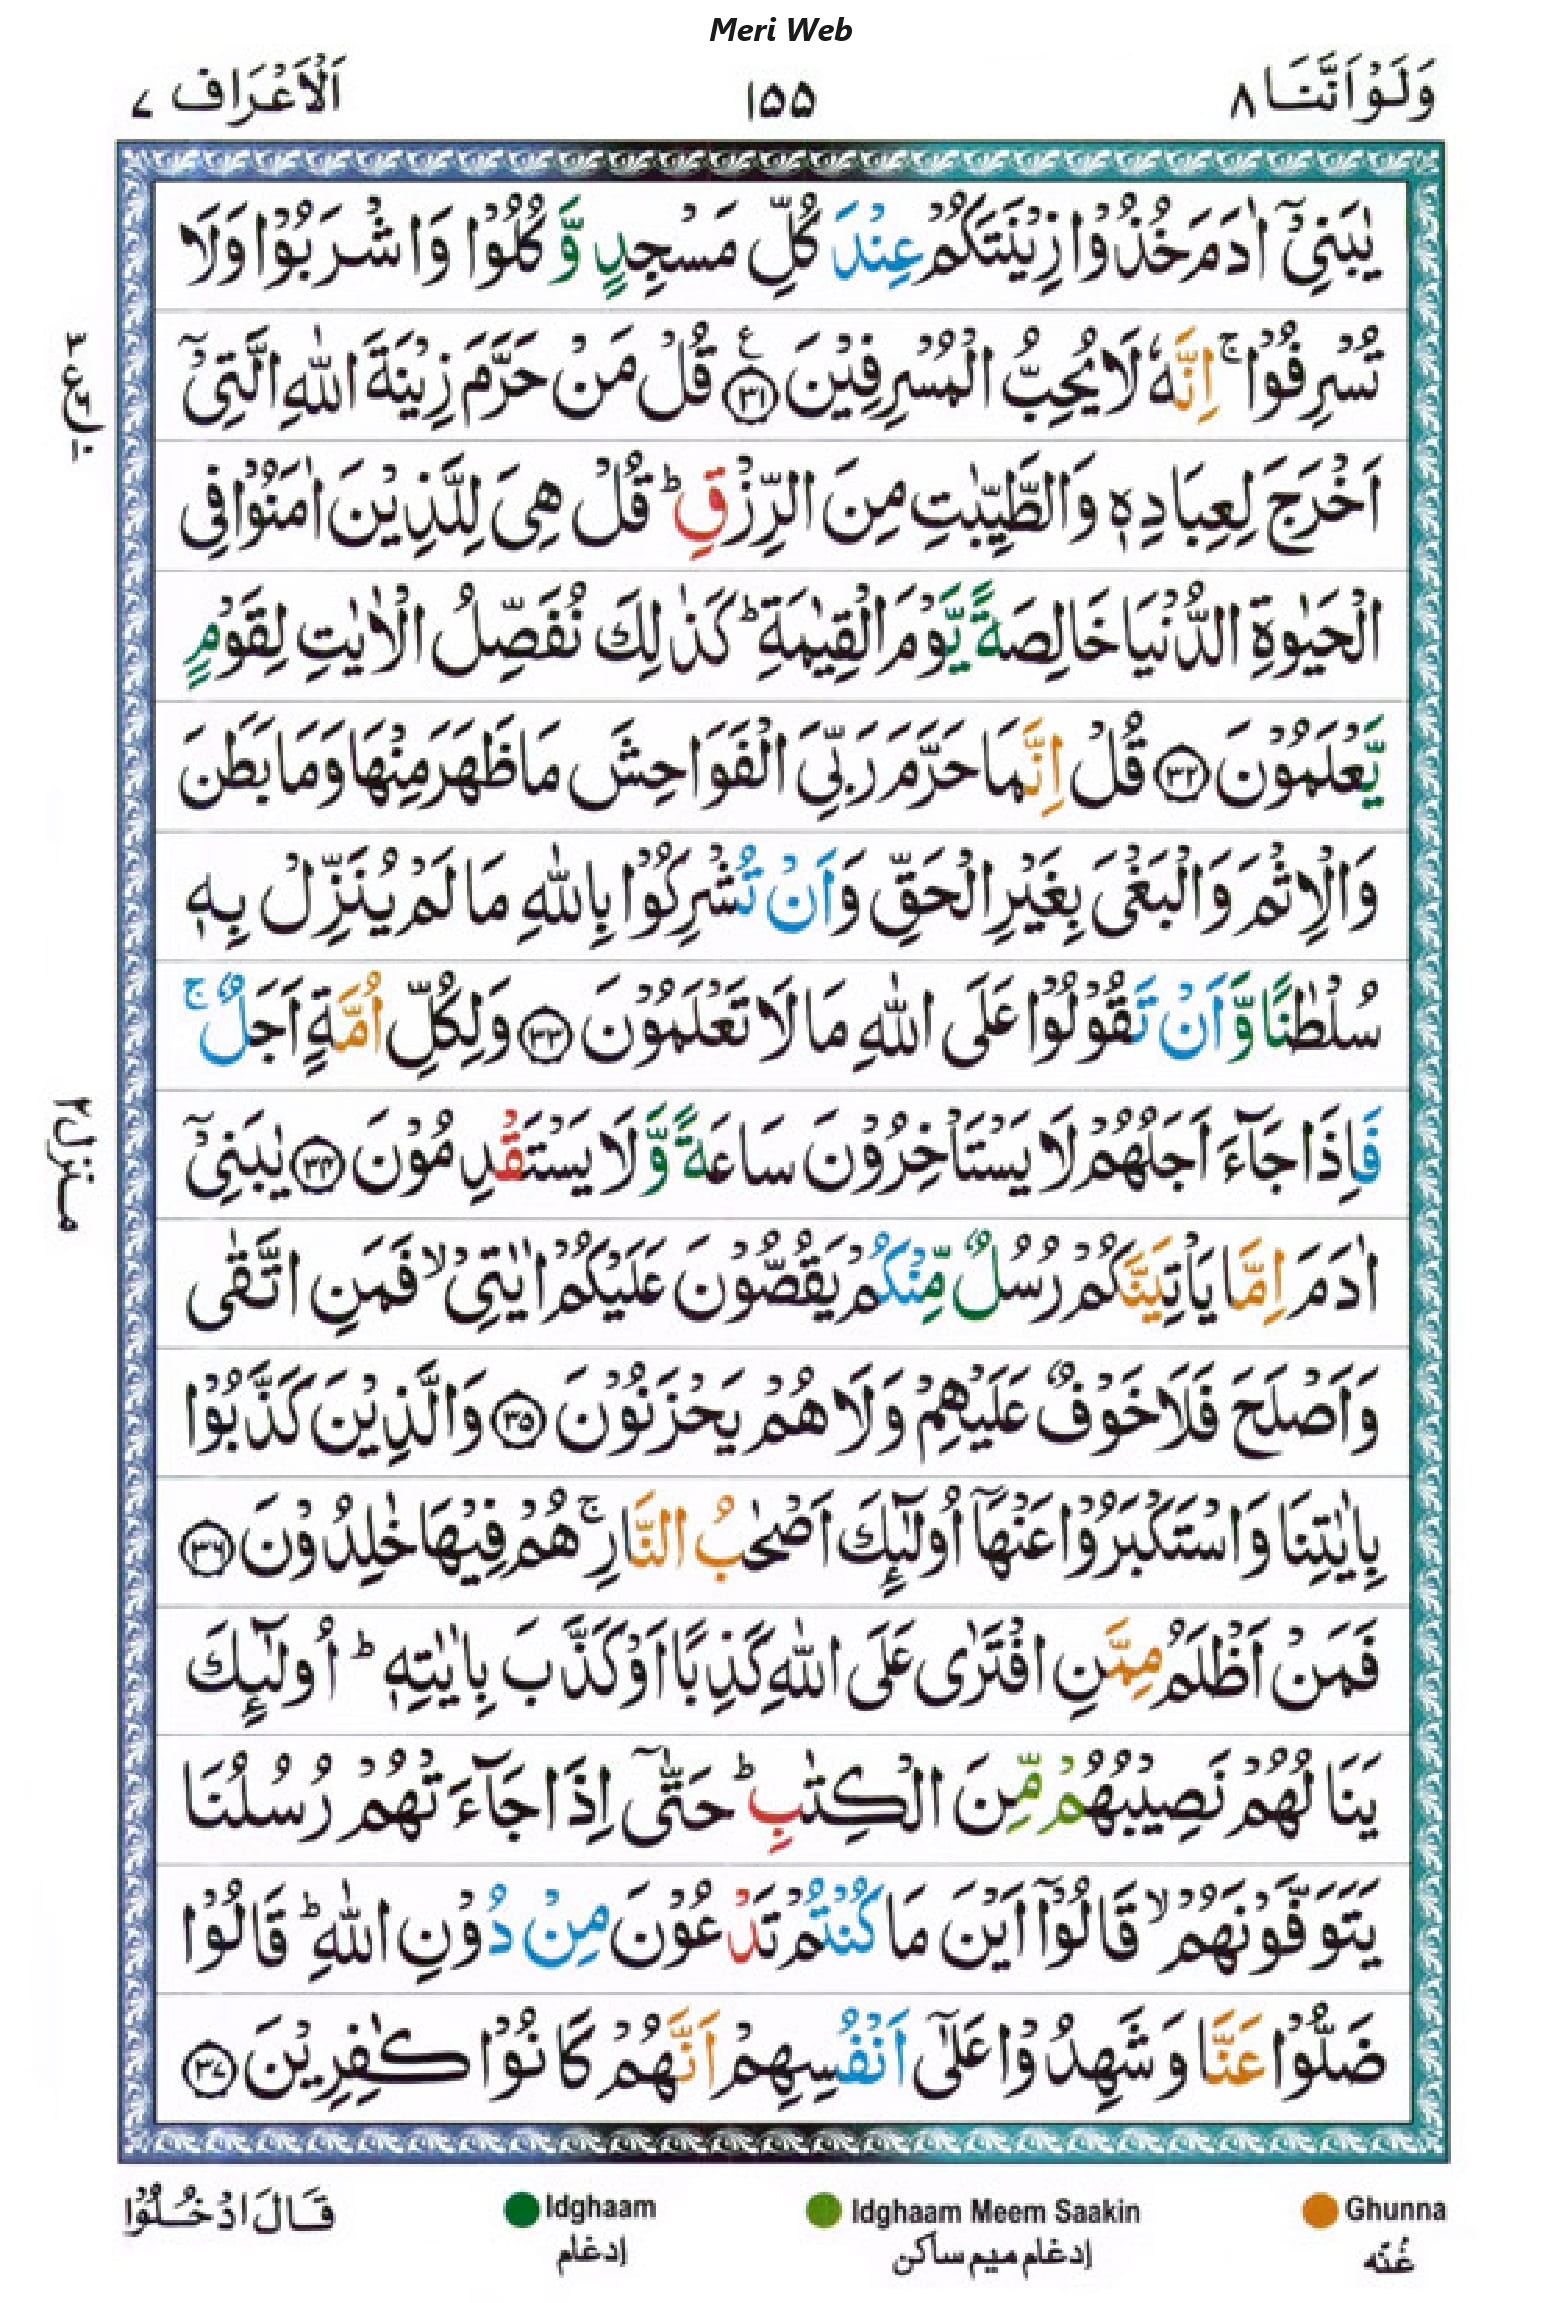 Meri Web
وَلَوْ اَنَّنَا ٨
١٥٥
اَلْاَعْرَاف ٧
يٰبَنِىْٓ اٰدَمَ خُذُوْا زِيْنَتَكُمْ عِنْدَ كُلِّ مَسْجِدٍ وَّ كُلُوْا وَاشْرَبُوْا وَلَا
تُسْرِفُوْا ۚ اِنَّهٗ لَا يُحِبُّ الْمُسْرِفِيْنَ ۧ ﴿٣١﴾ قُلْ مَنْ حَرَّمَ زِيْنَةَ اللّٰهِ الَّتِىْٓ
اَخْرَجَ لِعِبَادِهٖ وَالطَّيِّبٰتِ مِنَ الرِّزْقِ ؕ قُلْ هِىَ لِلَّذِيْنَ اٰمَنُوْا فِى
الْحَيٰوةِ الدُّنْيَا خَالِصَةً يَّوْمَ الْقِيٰمَةِ ؕ كَذٰلِكَ نُفَصِّلُ الْاٰيٰتِ لِقَوْمٍ
يَّعْلَمُوْنَ ﴿٣٢﴾ قُلْ اِنَّمَا حَرَّمَ رَبِّىَ الْفَوَاحِشَ مَا ظَهَرَ مِنْهَا وَمَا بَطَنَ
وَالْاِثْمَ وَالْبَغْىَ بِغَيْرِ الْحَقِّ وَاَنْ تُشْرِكُوْا بِاللّٰهِ مَا لَمْ يُنَزِّلْ بِهٖ
سُلْطٰنًا وَّاَنْ تَقُوْلُوْا عَلَى اللّٰهِ مَا لَا تَعْلَمُوْنَ ﴿٣٣﴾ وَلِكُلِّ اُمَّةٍ اَجَلٌ ۚ
فَاِذَا جَآءَ اَجَلُهُمْ لَا يَسْتَاْخِرُوْنَ سَاعَةً وَّلَا يَسْتَقْدِمُوْنَ ﴿٣٤﴾ يٰبَنِىْٓ
اٰدَمَ اِمَّا يَاْتِيَنَّكُمْ رُسُلٌ مِّنْكُمْ يَقُصُّوْنَ عَلَيْكُمْ اٰيٰتِىْ ۙ فَمَنِ اتَّقٰى
وَاَصْلَحَ فَلَا خَوْفٌ عَلَيْهِمْ وَلَا هُمْ يَحْزَنُوْنَ ﴿٣٥﴾ وَالَّذِيْنَ كَذَّبُوْا
بِاٰيٰتِنَا وَاسْتَكْبَرُوْا عَنْهَآ اُولٰٓئِكَ اَصْحٰبُ النَّارِ ۚ هُمْ فِيْهَا خٰلِدُوْنَ ﴿٣٦﴾
فَمَنْ اَظْلَمُ مِمَّنِ افْتَرٰى عَلَى اللّٰهِ كَذِبًا اَوْ كَذَّبَ بِاٰيٰتِهٖ ؕ اُولٰٓئِكَ
يَنَالُهُمْ نَصِيْبُهُمْ مِّنَ الْكِتٰبِ ؕ حَتّٰٓى اِذَا جَآءَتْهُمْ رُسُلُنَا
يَتَوَفَّوْنَهُمْ ۙ قَالُوْٓا اَيْنَ مَا كُنْتُمْ تَدْعُوْنَ مِنْ دُوْنِ اللّٰهِ ؕ قَالُوْا
ضَلُّوْا عَنَّا وَ شَهِدُوْا عَلٰٓى اَنْفُسِهِمْ اَنَّهُمْ كَانُوْا كٰفِرِيْنَ ﴿٣٧﴾
منزل ٢
Ghunna
غُنّه
Idghaam Meem Saakin
إدغام ميم ساكن
Idghaam
إدغام
قَالَ ادْخُلُوْا